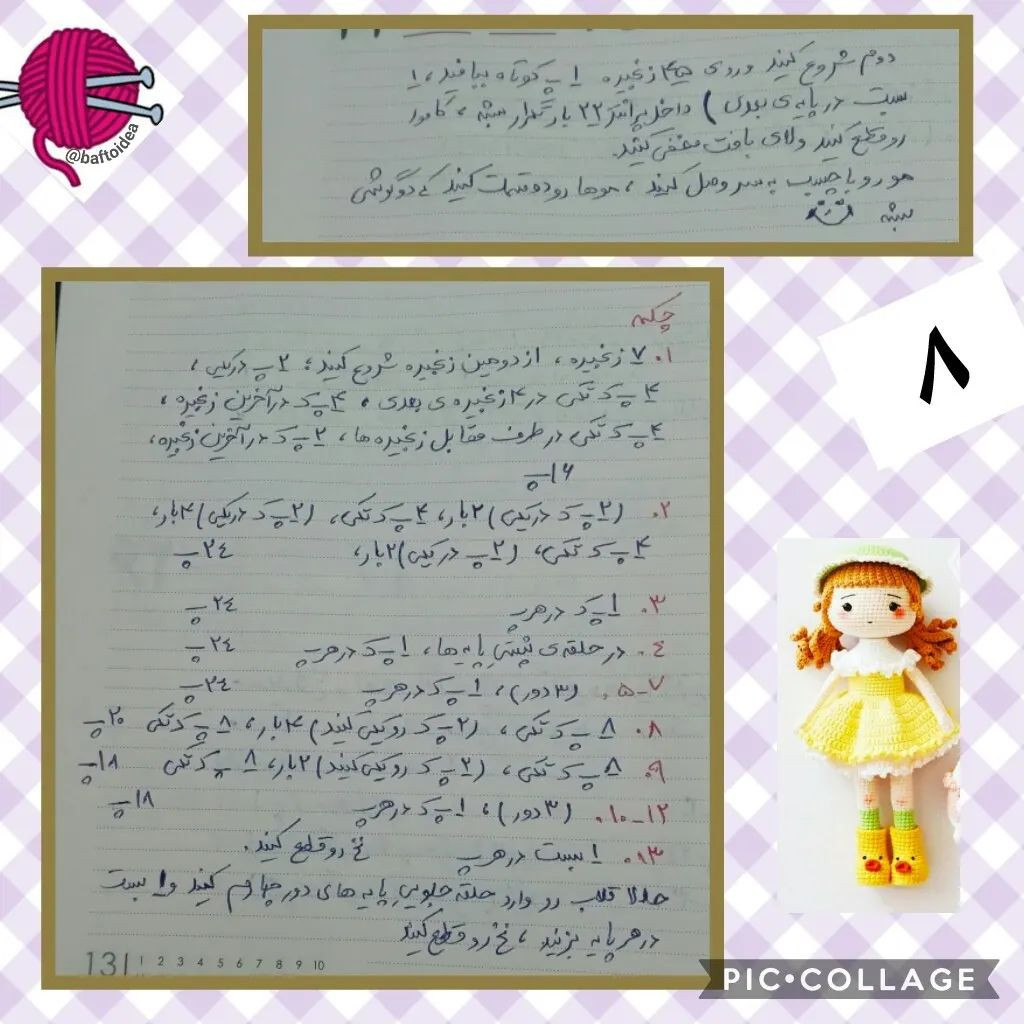 @baftoidea
دوم شروع کنید و روی ۴۵ زنجیره ۱ پ کوتاه ببافید، ۱
بست در پایه ی بعدی) داخل پرانتز ۲۲ بار تکرار میشه، کاموا
رو قطع کنید و لای بافت مخفی کنید.
مو رو با چسب به سر وصل کنید، موها رو دو قسمت کنید که دو گوشی
میشه
۸
چکمه
۱. ۷ زنجیره، از دومین زنجیره شروع کنید: ۲ پ در یکی،
۴ پ ک تکی در ۴ زنجیره ی بعدی، ۴ پ ک در آخرین زنجیره،
۴ پ ک تکی در طرف مقابل زنجیره ها، ۲ پ ک در آخرین زنجیره،
۱۶ پ
۲. (۲ پ ک در یکی) ۲ بار، ۴ پ ک تکی، (۲ پ ک در یکی) ۴ بار،
۴ پ ک تکی، (۲ پ در یکی) ۲ بار، ۲٤ پ
۳. ۱ پ ک در هر پ ۲٤ پ
٤. در حلقه ی پشتی پایه ها، ۱ پ ک در هر پ ۲٤ پ
۵-۷. (۳ دور)، ۱ پ ک در هر پ ۲٤ پ
۸. ۸ پ ک تکی، (۲ پ ک رو یکی کنید) ۴ بار، ۸ پ ک تکی ۲۰ پ
۹. ۸ پ ک تکی، (۲ پ ک رو یکی کنید) ۲ بار، ۸ پ ک تکی ۱۸ پ
۱۰-۱۲. (۳ دور)، ۱ پ ک در هر پ ۱۸ پ
۱۳. ۱ بست در هر پ نخ رو قطع کنید.
حالا قلاب رو وارد حلقه جلویی پایه های دور چهارم کنید و ۱ بست
در هر پایه بزنید، نخ رو قطع کنید
13 1 2 3 4 5 6 7 8 9 10
PIC•COLLAGE